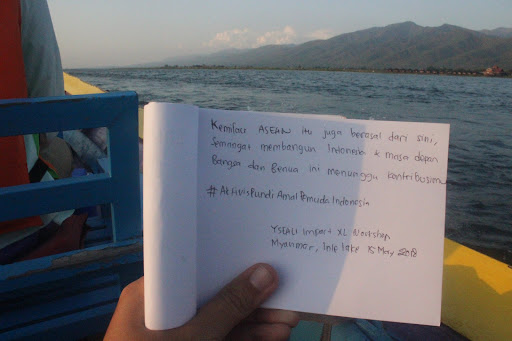 Kemilau ASEAN itu juga berasal dari sini,
Semangat membangun Indonesia & masa depan
Bangsa dan Benua ini menunggu kontribusimu
#AktivisPundiAmalPemudaIndonesia
YSEALI Impact XL Workshop
Myanmar, Inle lake 15 May 2018